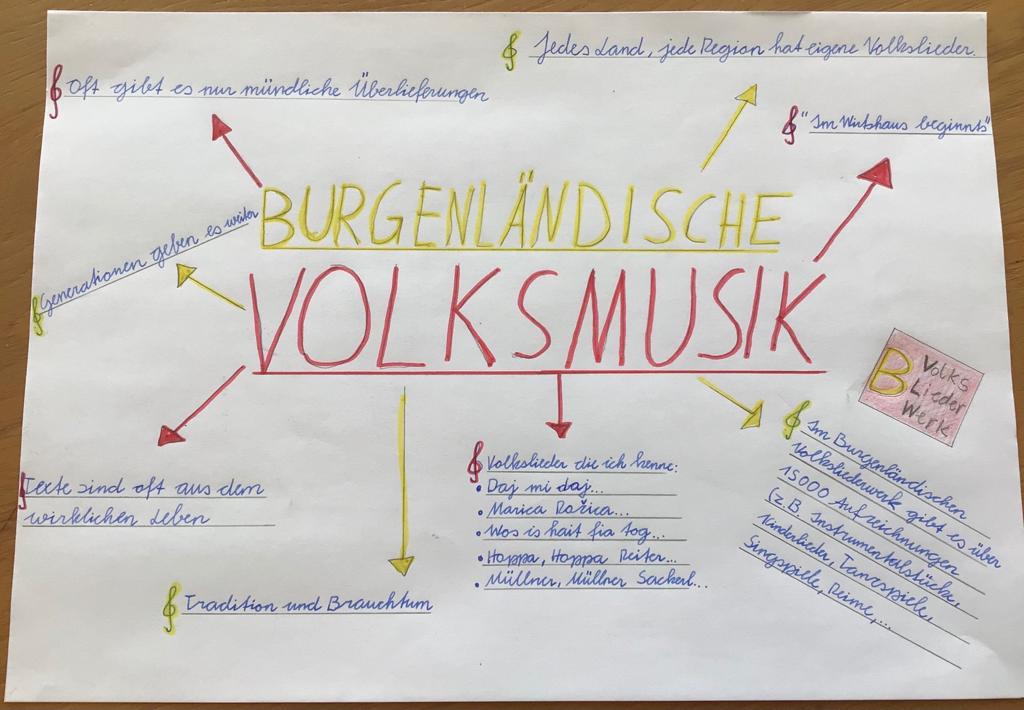 Jedes Land, jede Region hat eigene Volkslieder.
Oft gibt es nur mündliche Überlieferungen
"Im Wirtshaus beginnts"
BURGENLÄNDISCHE
VOLKSMUSIK
Generationen geben es weiter
B Volks
Lieder
Werk
Texte sind oft aus dem
wirklichen Leben
Tradition und Brauchtum
Volkslieder die ich kenne:
• Daj mi daj...
• Marica Rožica...
• Wos is hait fia tog...
• Hoppa, Hoppa Reiter...
• Müllner, Müllner Sackerl...
Im Burgenländischen
Volksliederwerk gibt es über
15000 Aufzeichnungen
(z.B. Instrumentalstücke,
Kinderlieder, Tanzspiele,
Singspiele, Reime,...